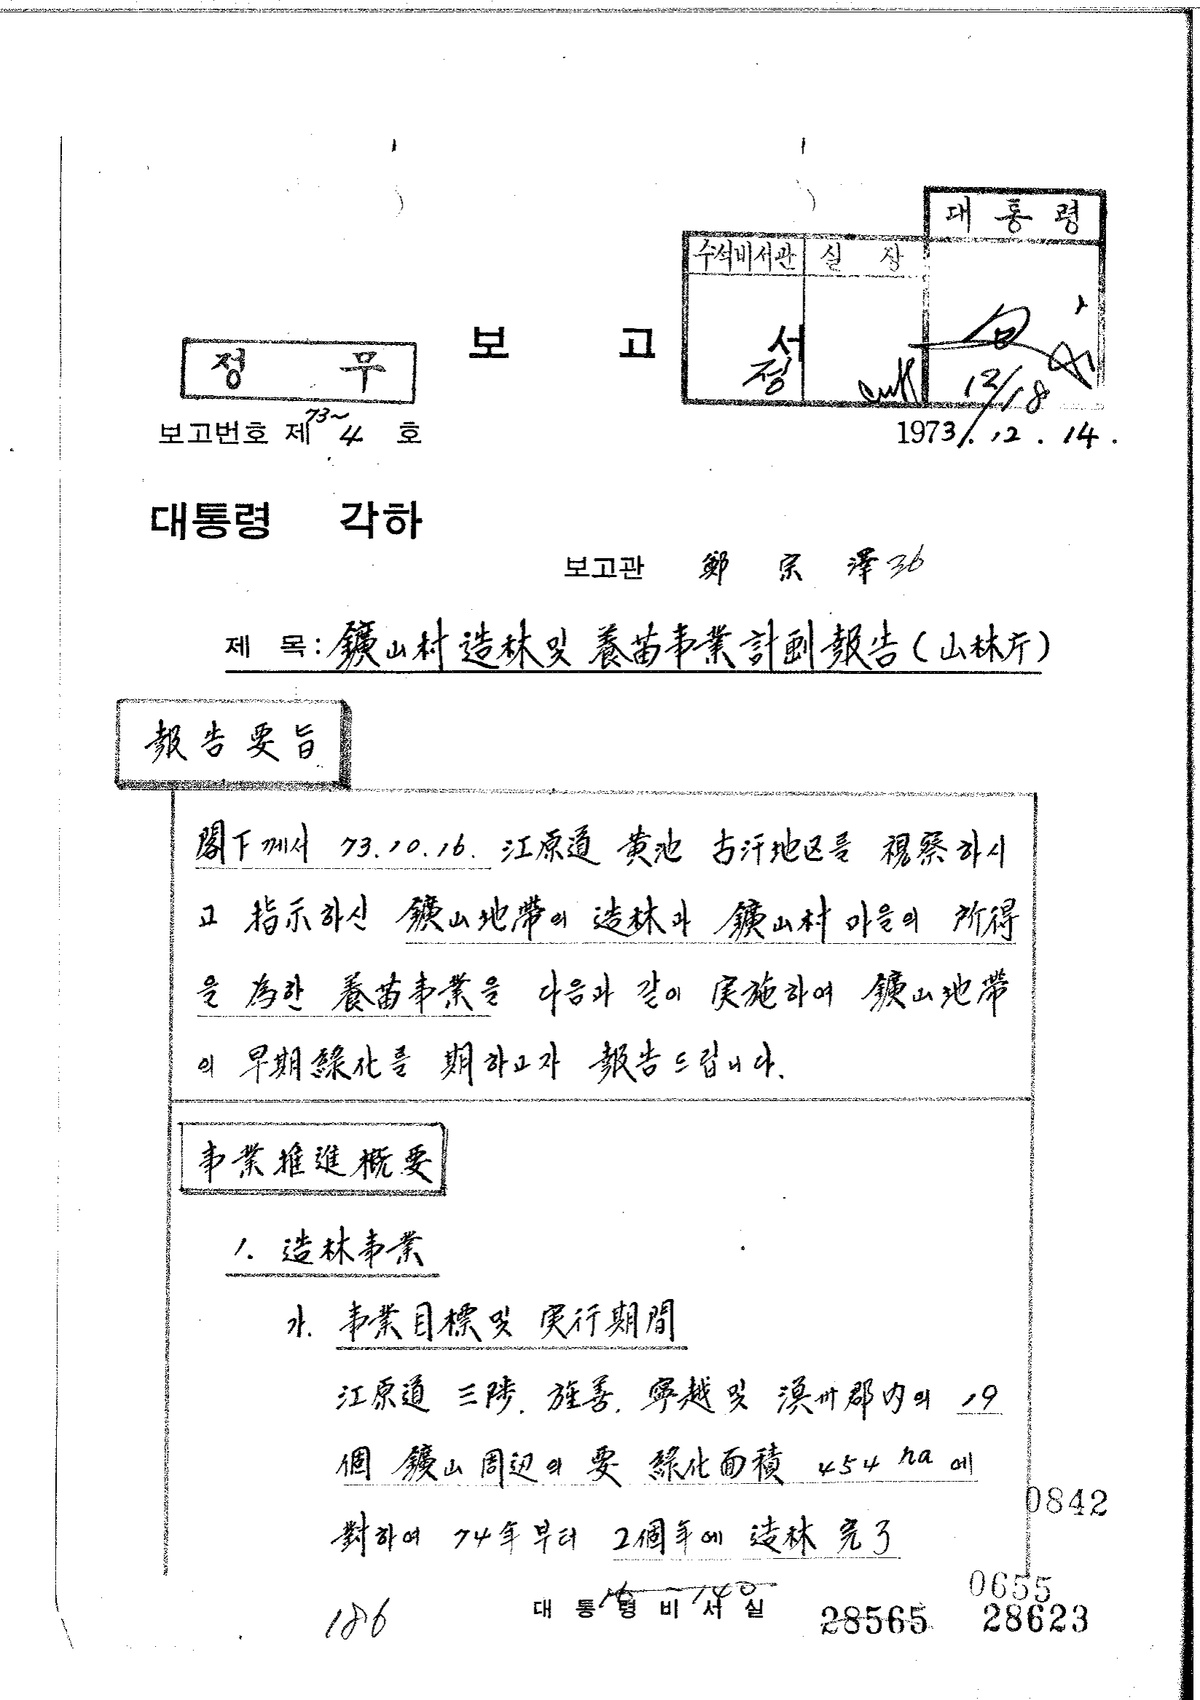 대통령
수석비서관 실장
보 고 서
정
정 무
12/18
보고번호 제 73~4 호
1973. 12. 14.
대통령 각하
보고관 鄭宗澤
제 목: 鑛山村 造林 및 養苗事業計劃報告(山林庁)
報告要旨
閣下께서 73.10.16. 江原道 黃池 古汗地区를 視察하시
고 指示하신 鑛山地帶의 造林과 鑛山村 마을의 所得
을 為한 養苗事業을 다음과 같이 実施하여 鑛山地帶
의 早期綠化를 期하고자 報告드립니다.
事業推進概要
1. 造林事業
가. 事業目標 및 実行期間
江原道 三陟, 旌善, 寧越 및 溟州郡內의 19
個 鑛山周辺의 要 綠化面積 454ha에
對하여 74年부터 2個年에 造林 完了
0842
0655
대통령비서실
186
28565 28623